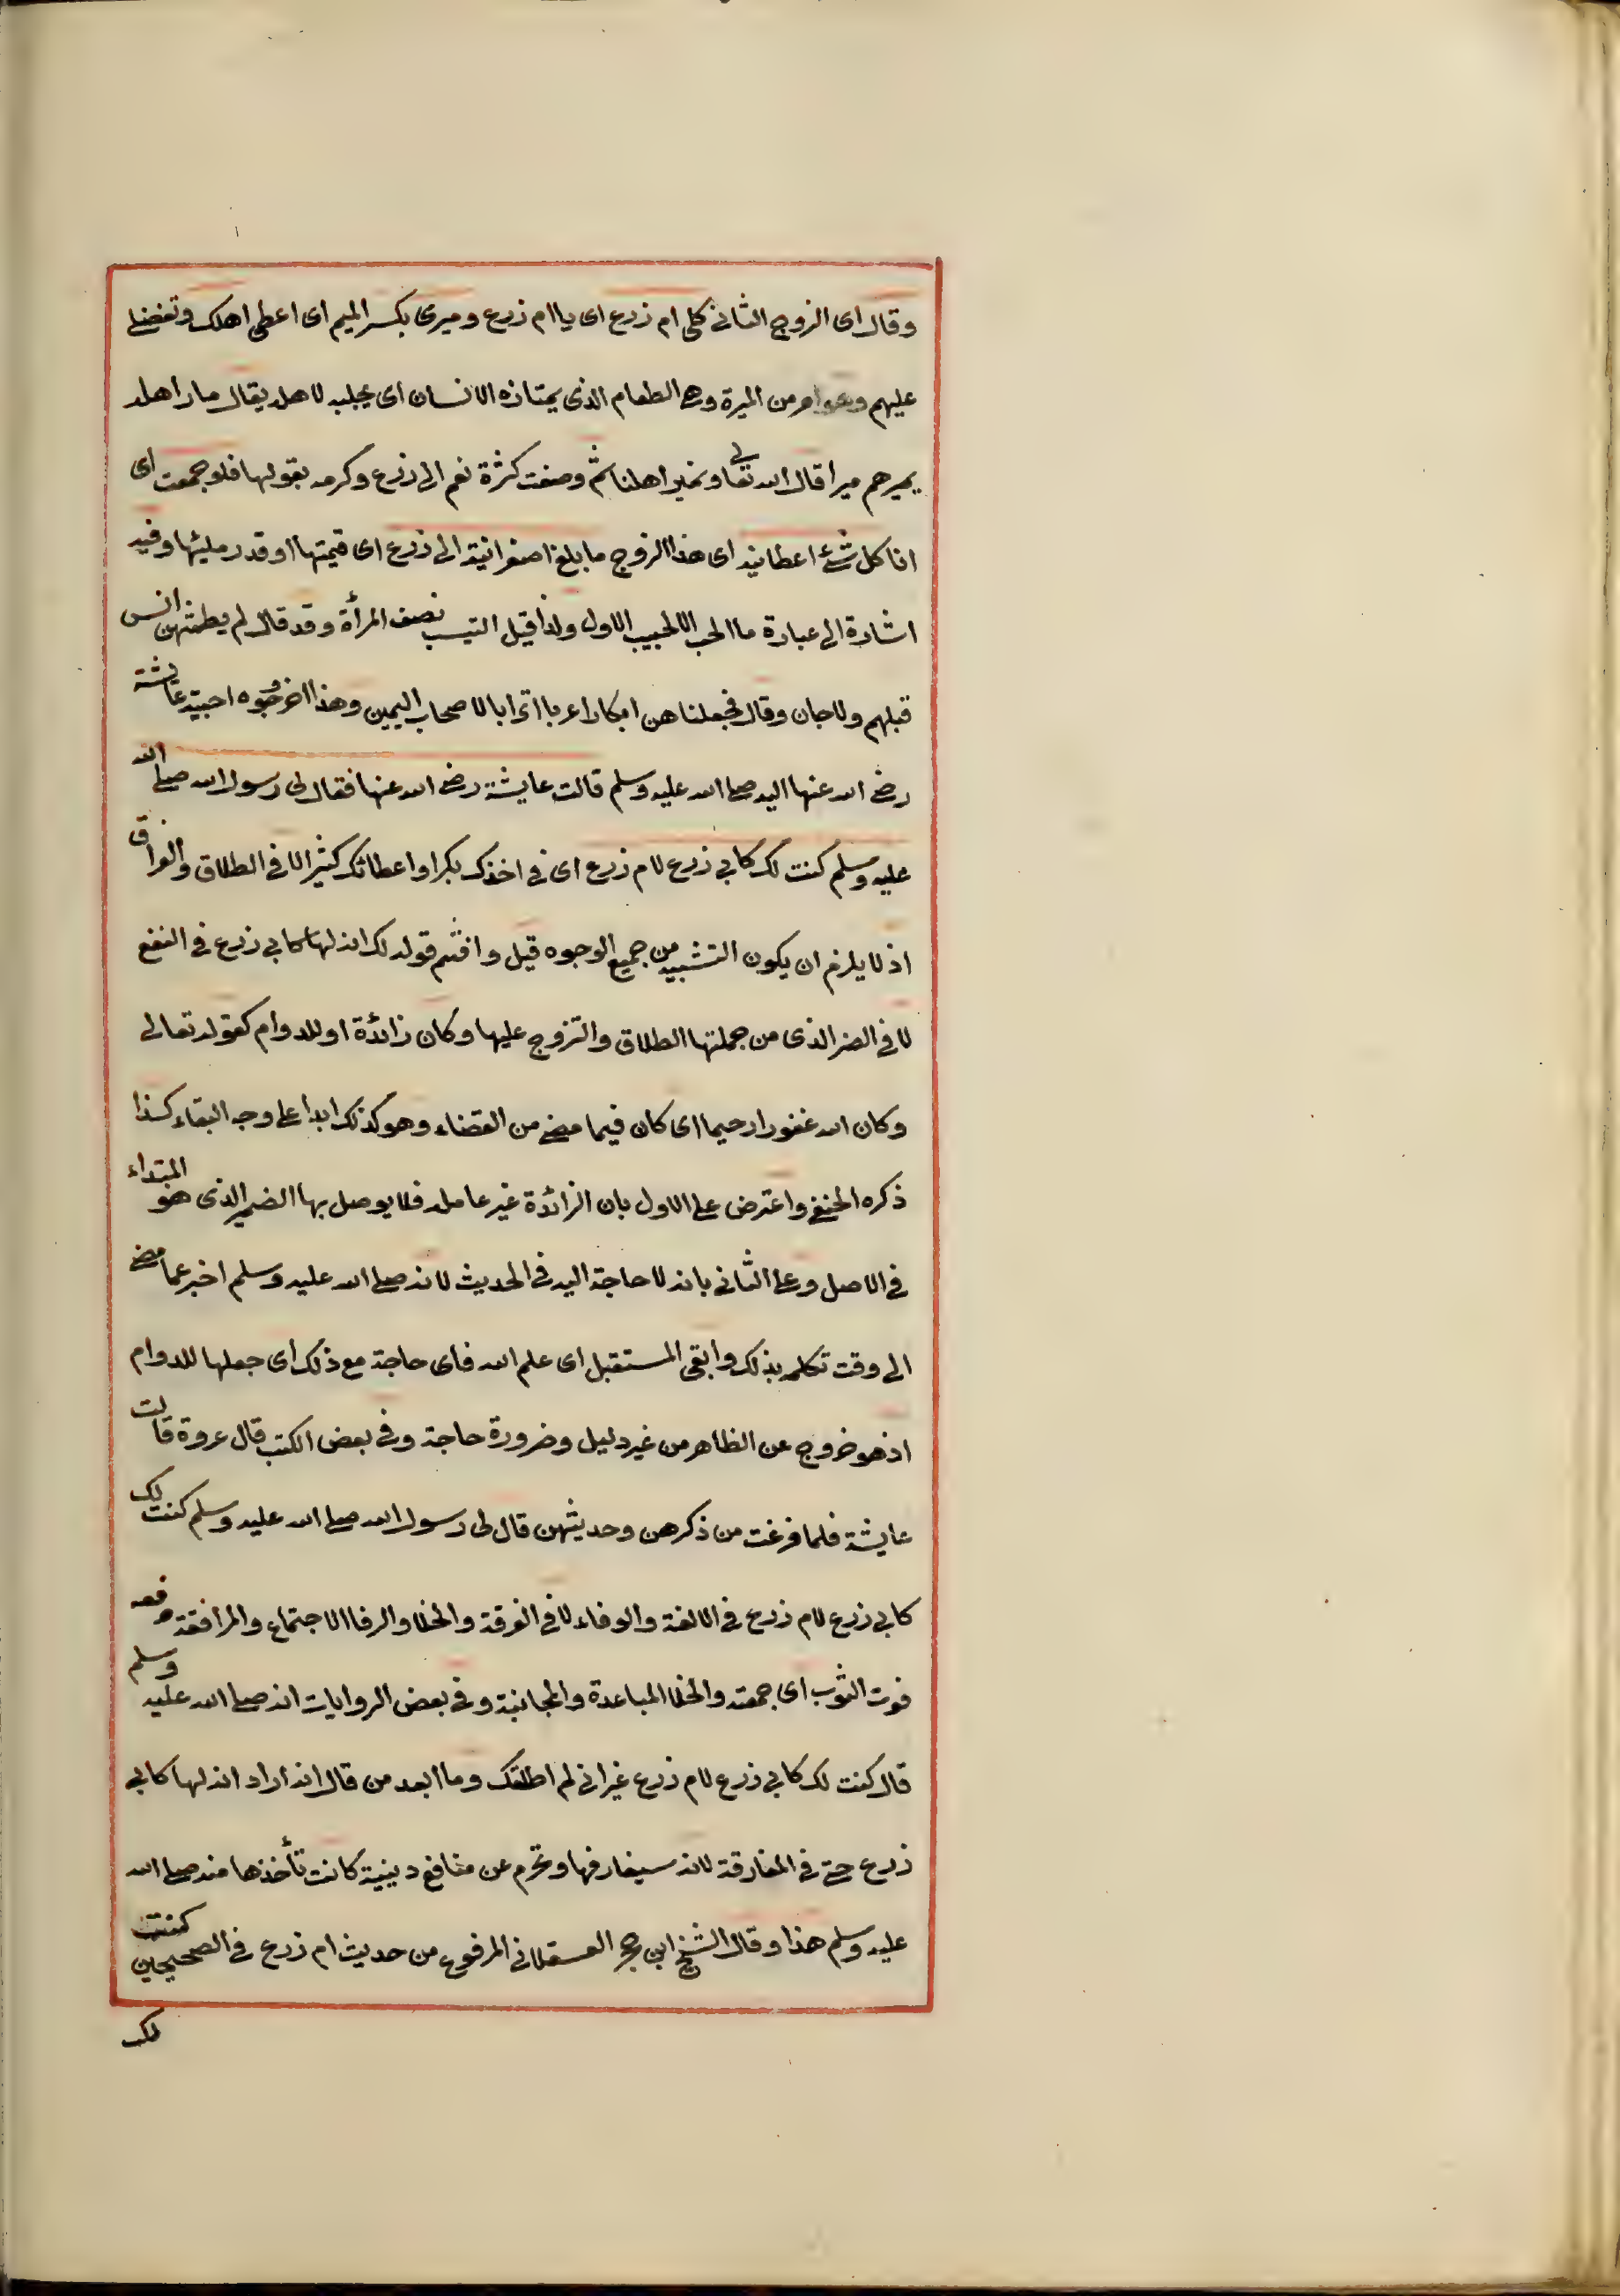 وقال اى الزوج الثانى كلى ام زرع اى يا ام زرع وميرى بكسر الميم اى اعطى اهلك وتفضلى
عليهم وهو امر من الميرة وهى الطعام الذى يمتازه الانسان اى يجلبه لاهله يقال مار اهله
يميرهم ميرا قال الله تعالى ونمير اهلنا ثم وصفت كثرة نعم ابى زرع وكرمه بقولها فلو جمعت اى
انا كل شئ اعطانيه اى هذا الزوج ما بلغ اصغر انية ابى زرع اى قيمتها او قدر مليئها وفيه
اشارة الى عبارة ما الحب الا للحبيب الاول ولذا قيل الثيب نصف المرأة وقد قال لم يطمثهن انس
قبلهم ولا جان وقال فجعلناهن ابكارا عربا اترابا لاصحاب اليمين وهذا احد وجوه احبية عائشة
رضى الله عنها اليه صلى الله عليه وسلم قالت عايشة رضى الله عنها فقال لى رسول الله صلى الله
عليه وسلم كنت لك كابى زرع لام زرع اى فى اخذك بكرا واعطائك كثيرا لا فى الطلاق والفراق
اذ لا يلزم ان يكون التشبيه من جميع الوجوه قيل وافهم قوله لك انه لها كابى زرع فى النفع
لا فى الضر الذى من جملتها الطلاق والتزوج عليها وكان زائدة او للدوام كقوله تعالى
وكان الله غفورا رحيما اى كان فيما مضى من القضاء وهو كذلك ابدا على وجه البقاء كذا
ذكره الحنفى واعترض على الاول بان الزائدة غير عامله فلا يوصل بها الضمير الذى هو المبتداء
فى الاصل وعلى الثانى بانه لا حاجة اليه فى الحديث لانه صلى الله عليه وسلم اخبر عما مضى
الى وقت تكلمه بذلك وابقى المستقبل اى علم الله فاى حاجة مع ذلك اى جعلها للدوام
اذ هو خروج عن الظاهر من غير دليل وضرورة حاجة وفى بعض الكتب قال عروة قالت
عايشة فلما فرغت من ذكرهن وحديثهن قال لى رسول الله صلى الله عليه وسلم كنت لك
كابى زرع لام زرع فى الالفة والوفاء لا فى الفرقة والخلا والرفا الاجتماع والمرافقة ومنه
فوت الثوب اى جمعته والخلا المباعدة والمجانبة وفى بعض الروايات انه صلى الله عليه وسلم
قال كنت لك كابى زرع لام زرع غير انى لم اطلقك وما ابعد من قال انه اراد انه لها كابى
زرع حتى فى المفارقة لانه سيفارقها وتحرم عن منافع دينية كانت تأخذها منه صلى الله
عليه وسلم هذا وقال الشيخ ابن حجر العسقلانى المرفوع من حديث ام زرع فى الصحيحين كنت
لك